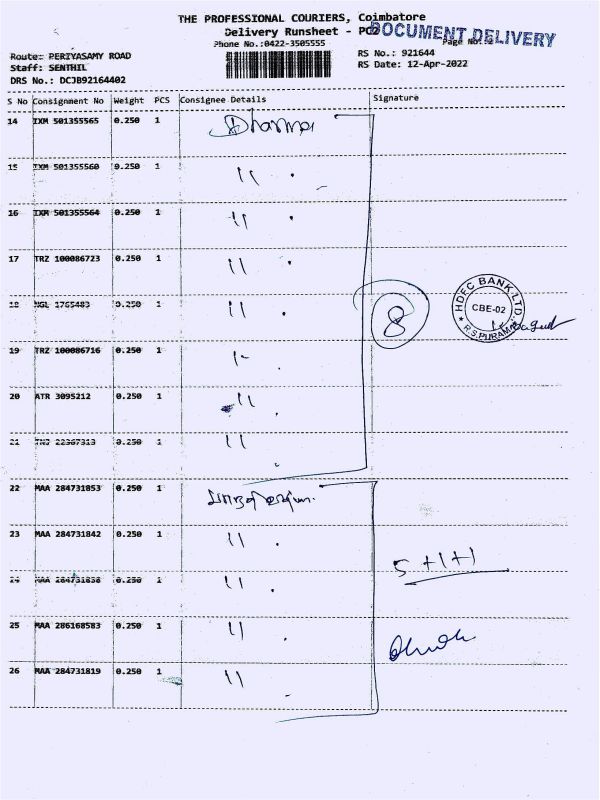 THE PROFESSIONAL COURIERS, Coimbatore
Delivery Runsheet - PC2
DOCUMENT DELIVERY
Phone No.:0422-3505555
Page No.:
Route: PERIYASAMY ROAD
Staff: SENTHIL
DRS No.: DCJB92164402
RS No.: 921644
RS Date: 12-Apr-2022
S No Consignment No Weight PCS Consignee Details Signature
14 IXM 501355565 0.250 1 Dharma
15 IXM 501355560 0.250 1 "
16 IXM 501355564 0.250 1 "
17 TRZ 100086723 0.250 1 "
18 NGL 1765483 0.250 1 "
8
HDFC BANK LTD.
CBE-02
R.S.PURAM
19 TRZ 100086716 0.250 1 "
20 ATR 3095212 0.250 1 "
21 22367313 0.250 1 "
22 MAA 284731853 0.250 1
23 MAA 284731842 0.250 1 "
5+1+1
24 MAA 284731838 0.250 1 "
25 MAA 286168583 0.250 1 "
26 MAA 284731819 0.250 1 "